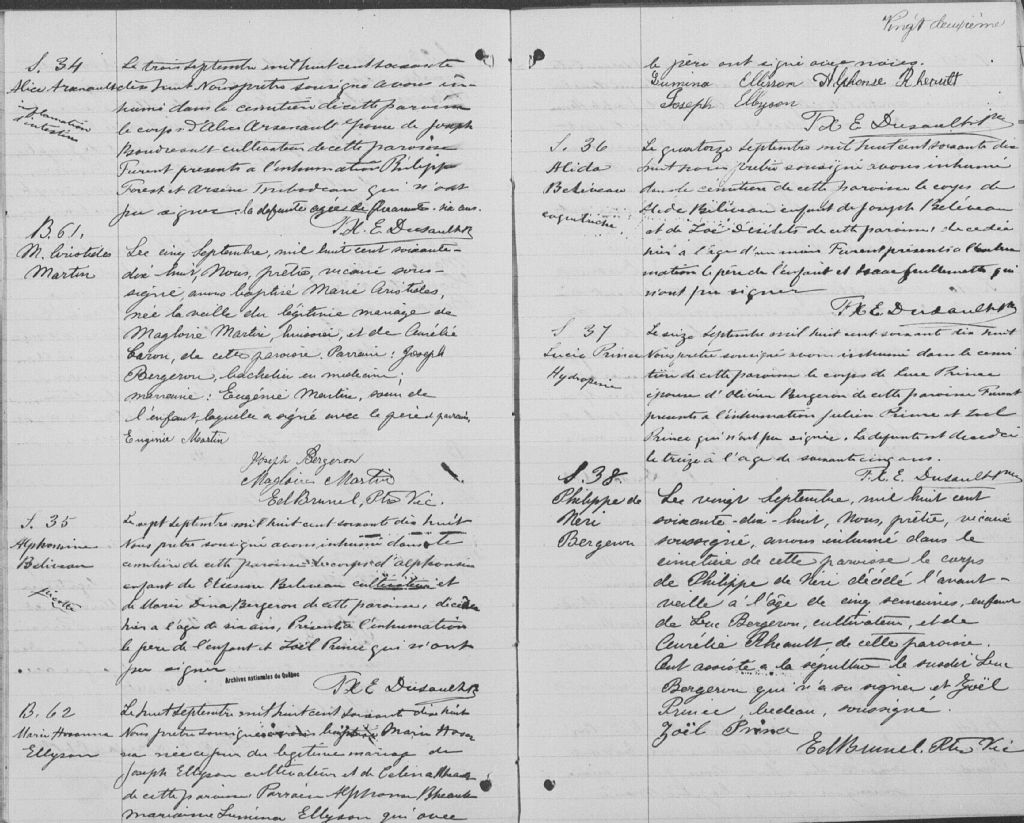 S. 34
Alice Arsenault
Inflamation
d'intestins
Le trois septembre mil huit cent soixante
dix huit Nous prêtre sousigné avons in-
humé dans le cimetière de cette paroisse
le corps d'Alice Arsenault épouse de Joseph
Boudreault cultivateur de cette paroisse
Furent présents à l'inhumation Philippe
Forest et Arsène Thibodeau qui n'ont
pu signer. la defunte agée de quarante-six ans.
F. X. E. Dusault Ptr
B. 61,
M. Aristoles
Martin
Lec cinq Septembre, mil huit cent soixante-
dix-huit, Nous, prêtre, vicaire sous-
signé, avons baptisé Marie Aristoles,
née la veille du légitime mariage de
Magloire Martin, huissier, et de Aurélie
Caron, de cette paroisse. Parrain: Joseph
Bergeron, bachelier en médecine;
marraine: Eugénie Martin, sœur de
l'enfant, laquelle a signé avec le père et parrain.
Eugénie Martin
Joseph Bergeron
Magloire Martin
Ed Brunel, Ptre Vic.
S. 35
Alphonsine
Beliveau
Le sept septembre mil huit cent soixante dix huit
Nous prêtre sousigné avons inhumé dans le
cimetière de cette paroisse le corps d'alphonsine
enfant de Beliveau cultivateur et
de Marie Dina Bergeron de cette paroisse, décédée
hier à l'age de six ans, Présents à l'inhumation
le père de l'enfant et Zoël Prince qui n'ont
pu signer
Archives nationales du Québec
F. X. E. Dusault Ptr
B. 62
Marie Hosanna
Ellyson
Le huit septembre mil huit cent soixante dix huit
Nous prêtre sousigné avons baptisé Marie Hosa
na née ce jour du légitime mariage de
Joseph Ellyson cultivateur et de Celina Rheault
de cette paroisse Parrain Alphonse Rheault
marraine Lumina Ellyson qui avec
Vingt deuxième
le père ont signé avec nous.
Lumina Ellyson Alphonse Rheault
Joseph Ellyson
F. X. E. Dusault Ptr
S. 36
Alida
Beliveau
coqueluche
Le quatorze septembre mil huit cent soixante dix
huit nous prêtre sousigné avons inhumé
dans le cimetière de cette paroisse le corps de
Alida Béliveau enfant de Joseph Béliveau
et de Zoé Désilets de cette paroisse, décédée
hier à l'âge d'un mois Furent présents à l'inhu
mation le père de l'enfant et Isaac qui
n'ont pu signer
F. X. E. Dusault Ptr
S. 37
Lucie Prince
Hydropisie
Le seize septembre mil huit cent soixante dix huit
Nous prêtre sousigné avons inhumé dans le cime
tière de cette paroisse le corps de Luce Prince
épouse d'Olivier Bergeron de cette paroisse Furent
présents à l'inhumation Julien Prince et Zoel
Prince qui n'ont pu signer. La defunte est décédée
le treize à l'age de soixante cinq ans.
F. X. E. Dusault Ptr
S. 38
Philippe de
Néri
Bergeron
Lec vingt Septembre, mil huit cent
soixante-dix-huit, Nous, prêtre, vicaire
soussigné, avons inhumé dans le
cimetière de cette paroisse le corps
de Philippe de Néri décédé l'avant-
veille à l'âge de cinq semaines, enfant
de Luc Bergeron, cultivateur, et de
Aurélie Rheault, de cette paroisse.
Ont assisté a la sépulture le susdit Luc
Bergeron qui n'a su signer et Zoël
Prince, bedeau, soussigné.
Zoël Prince
Ed Brunel, Ptre Vic